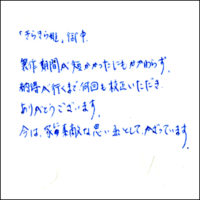 「きらきら姫」御中
製作期間が短かかったにもかかわらず、
納得が行くまで何回も校正いただき
ありがとうございます。
今は、家宝 素敵な思い出として、かざっています。